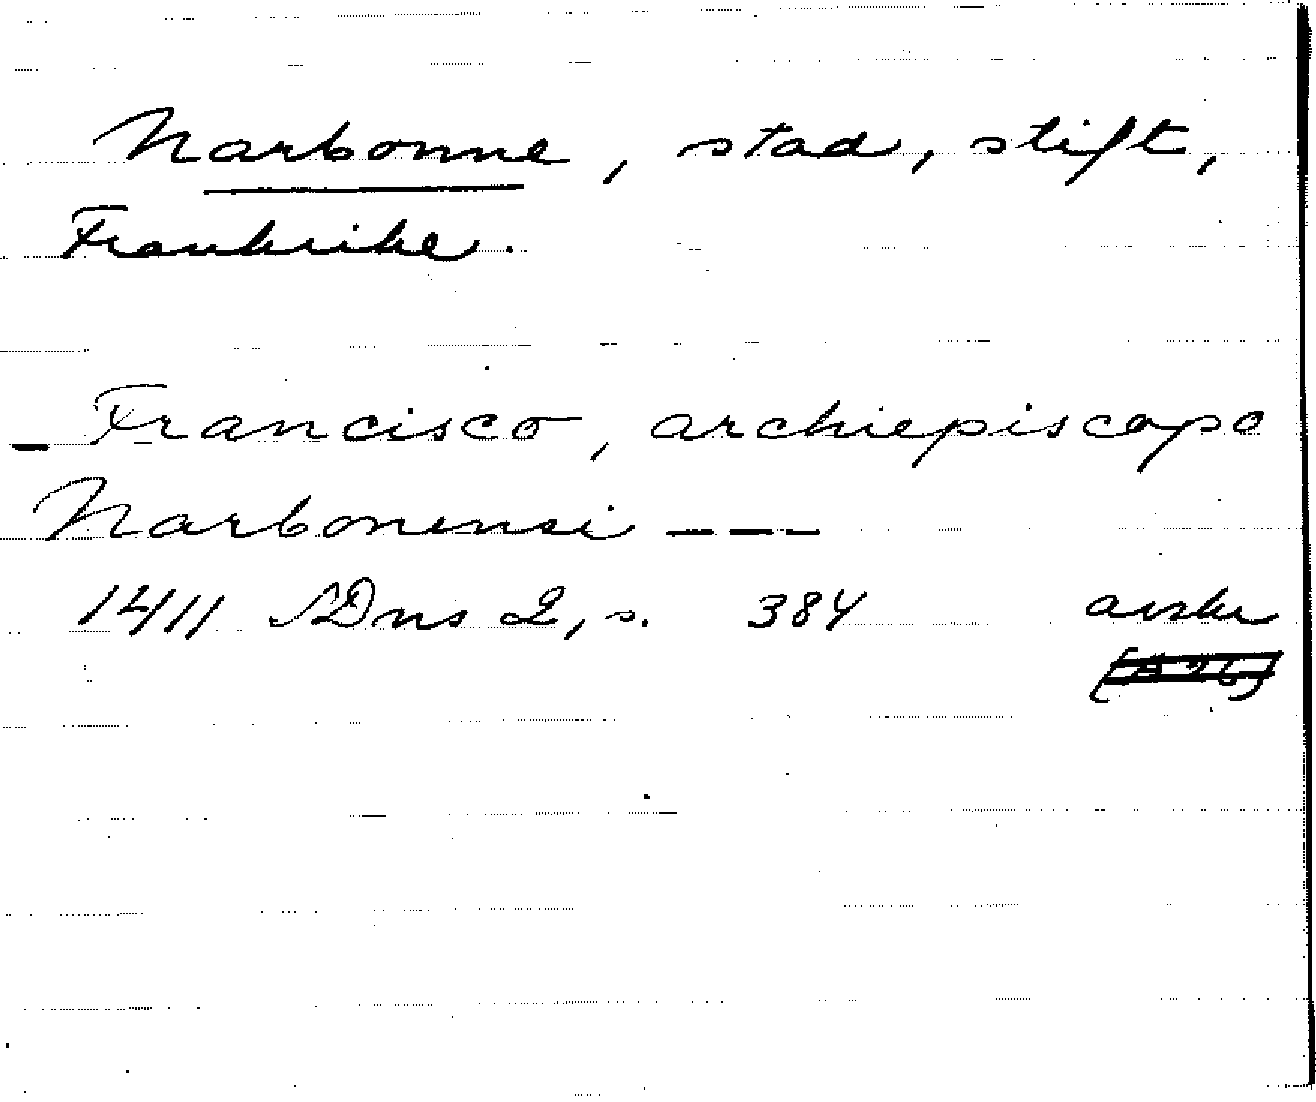 Narbonne, stad, stift,
Frankrike.
– Francisco, archiepiscopo
Narbonensi – – –
1411 SDns 2, s. 384 avskr